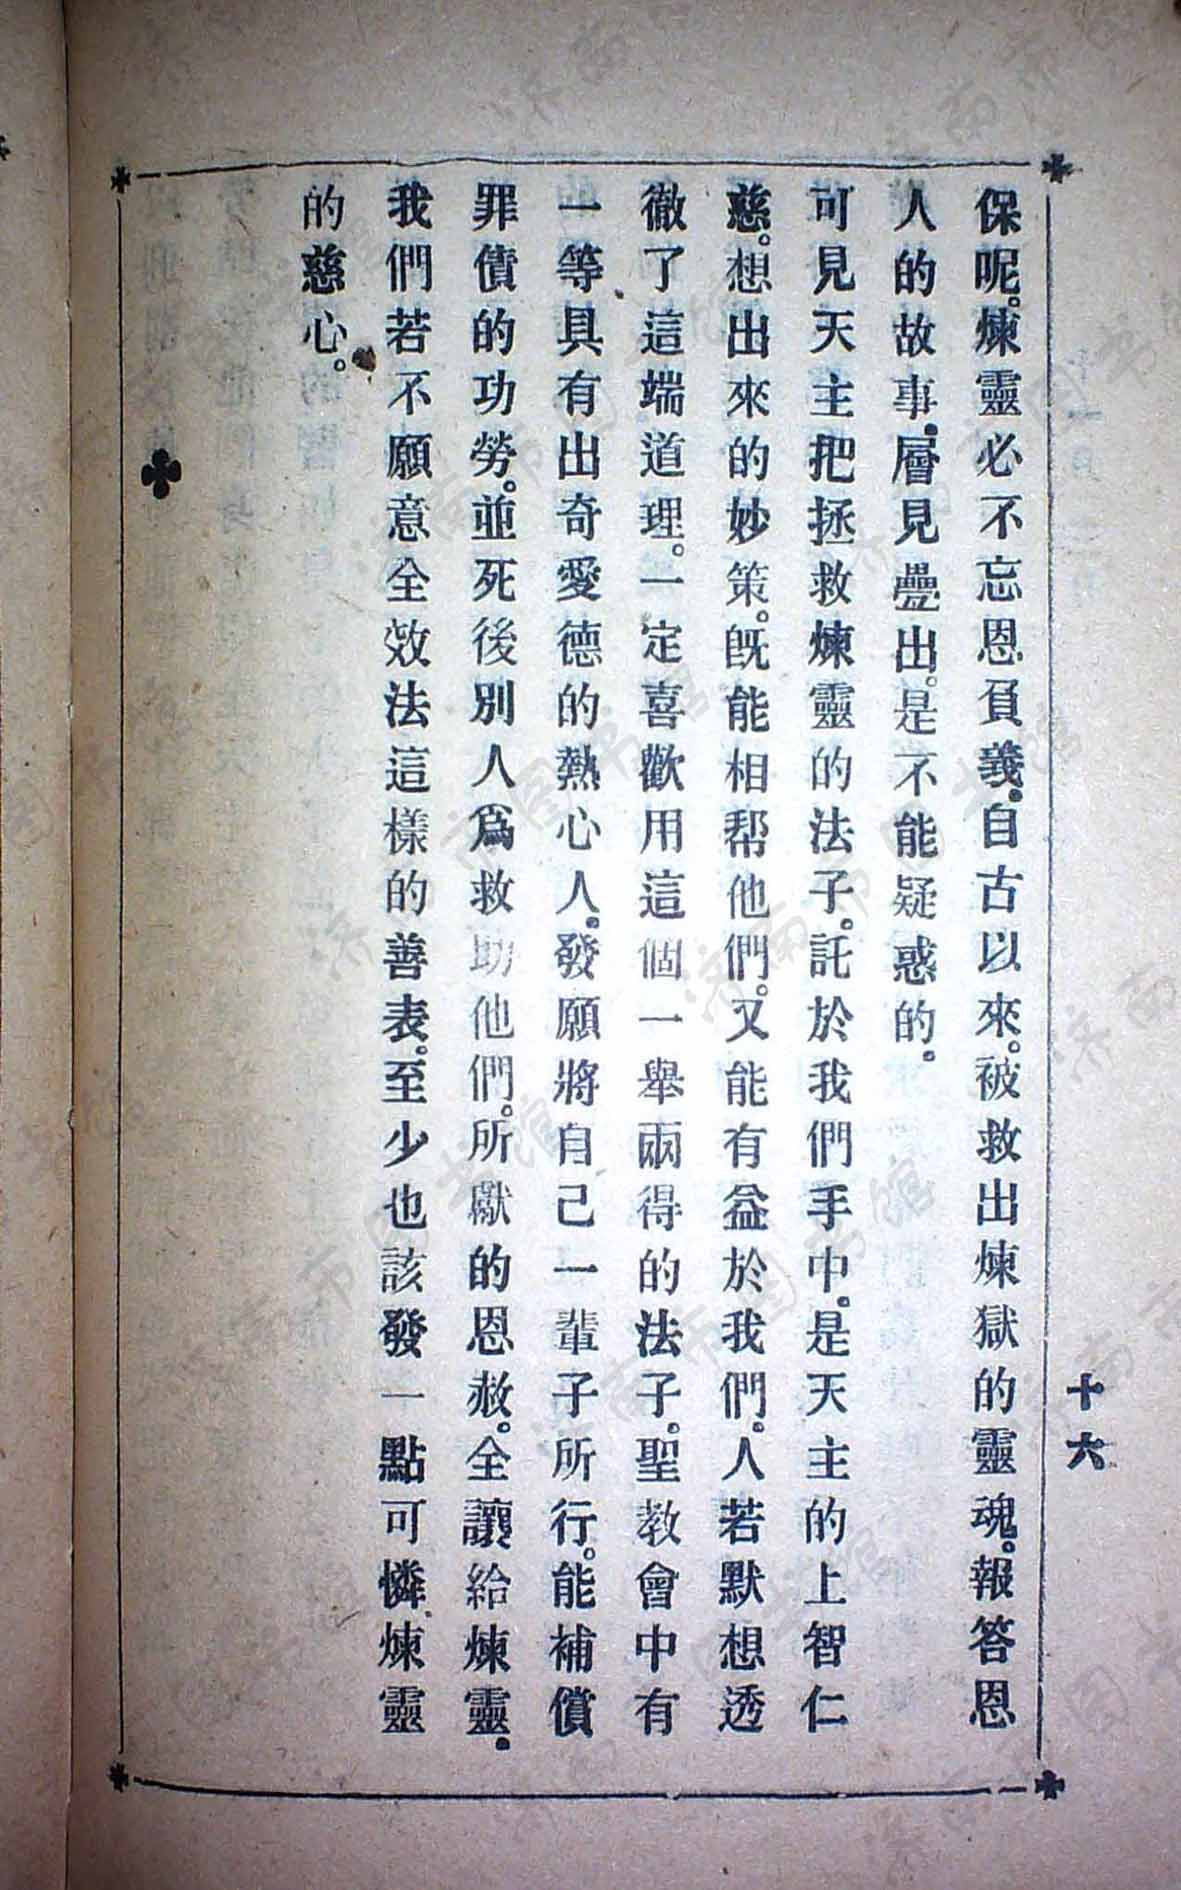 十六
保呢。煉靈必不忘恩負義。自古以來。被救出煉獄的靈魂。報答恩
人的故事。層見疊出。是不能疑惑的。
可見天主把拯救煉靈的法子。託於我們手中。是天主的上智仁
慈。想出來的妙策。既能相帮他們。又能有益於我們。人若默想透
徹了這端道理。一定喜歡用這個一舉兩得的法子。聖教會中有
一等具有出奇愛德的熱心人。發願將自己一輩子所行。能補償
罪債的功勞。並死後別人爲救助他們。所獻的恩赦。全讓給煉靈。
我們若不願意全效法這樣的善表。至少也該發一點可憐煉靈
的慈心。
济南市图书馆